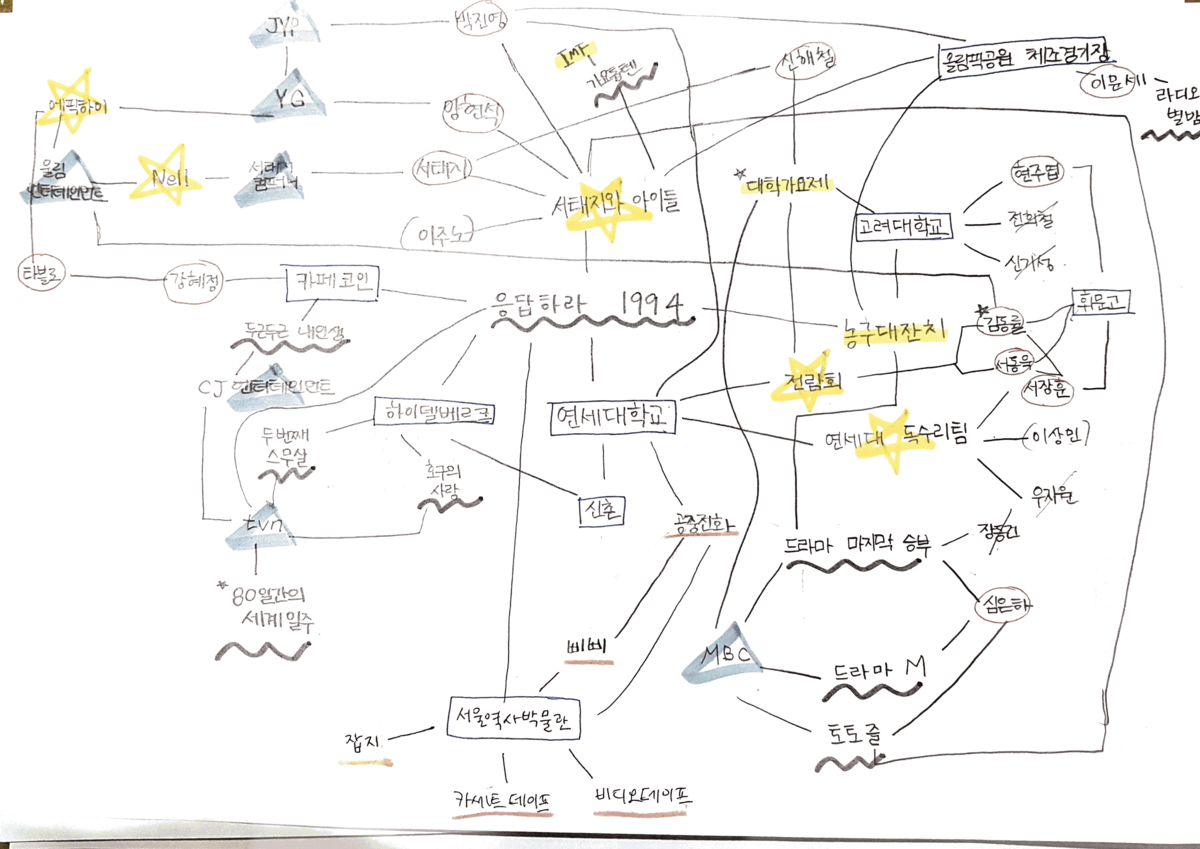 JYP
박진영
IMF
가요톱텐
신해철
올림픽공원 체조경기장
이문세
라디오
별밤
에픽하이
YG
양현석
울림
엔터테인먼트
Nell
서태지
컴퍼니
서태지
서태지와 아이들
*대학가요제
고려대학교
현주엽
전희철
신기성
(이주노)
타블로
강혜정
카페코인
응답하라 1994
농구대잔치
*김동률
휘문고
두근두근 내인생
서동욱
서장훈
CJ 엔터테인먼트
전람회
하이델베르크
연세대학교
연세대 독수리팀
(이상민)
두번째
스무살
호구의
사랑
우지원
신촌
tvn
공중전화
드라마 마지막 승부
장동건
*80일간의
세계일주
심은하
삐삐
MBC
드라마 M
서울역사박물관
잡지
토토즐
카세트 테이프
비디오테이프